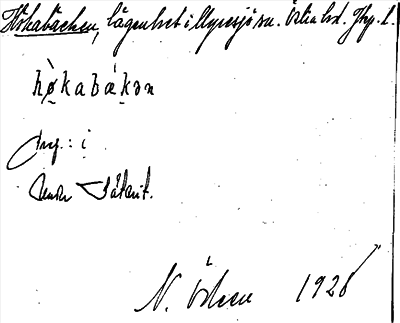 Hökabäcken, lägenhet i Myresjö sn. Östra hd. Jkp. l.
hø̀kabǽkən
prep.: i
Under Båterit.
N. Ödeen 1926